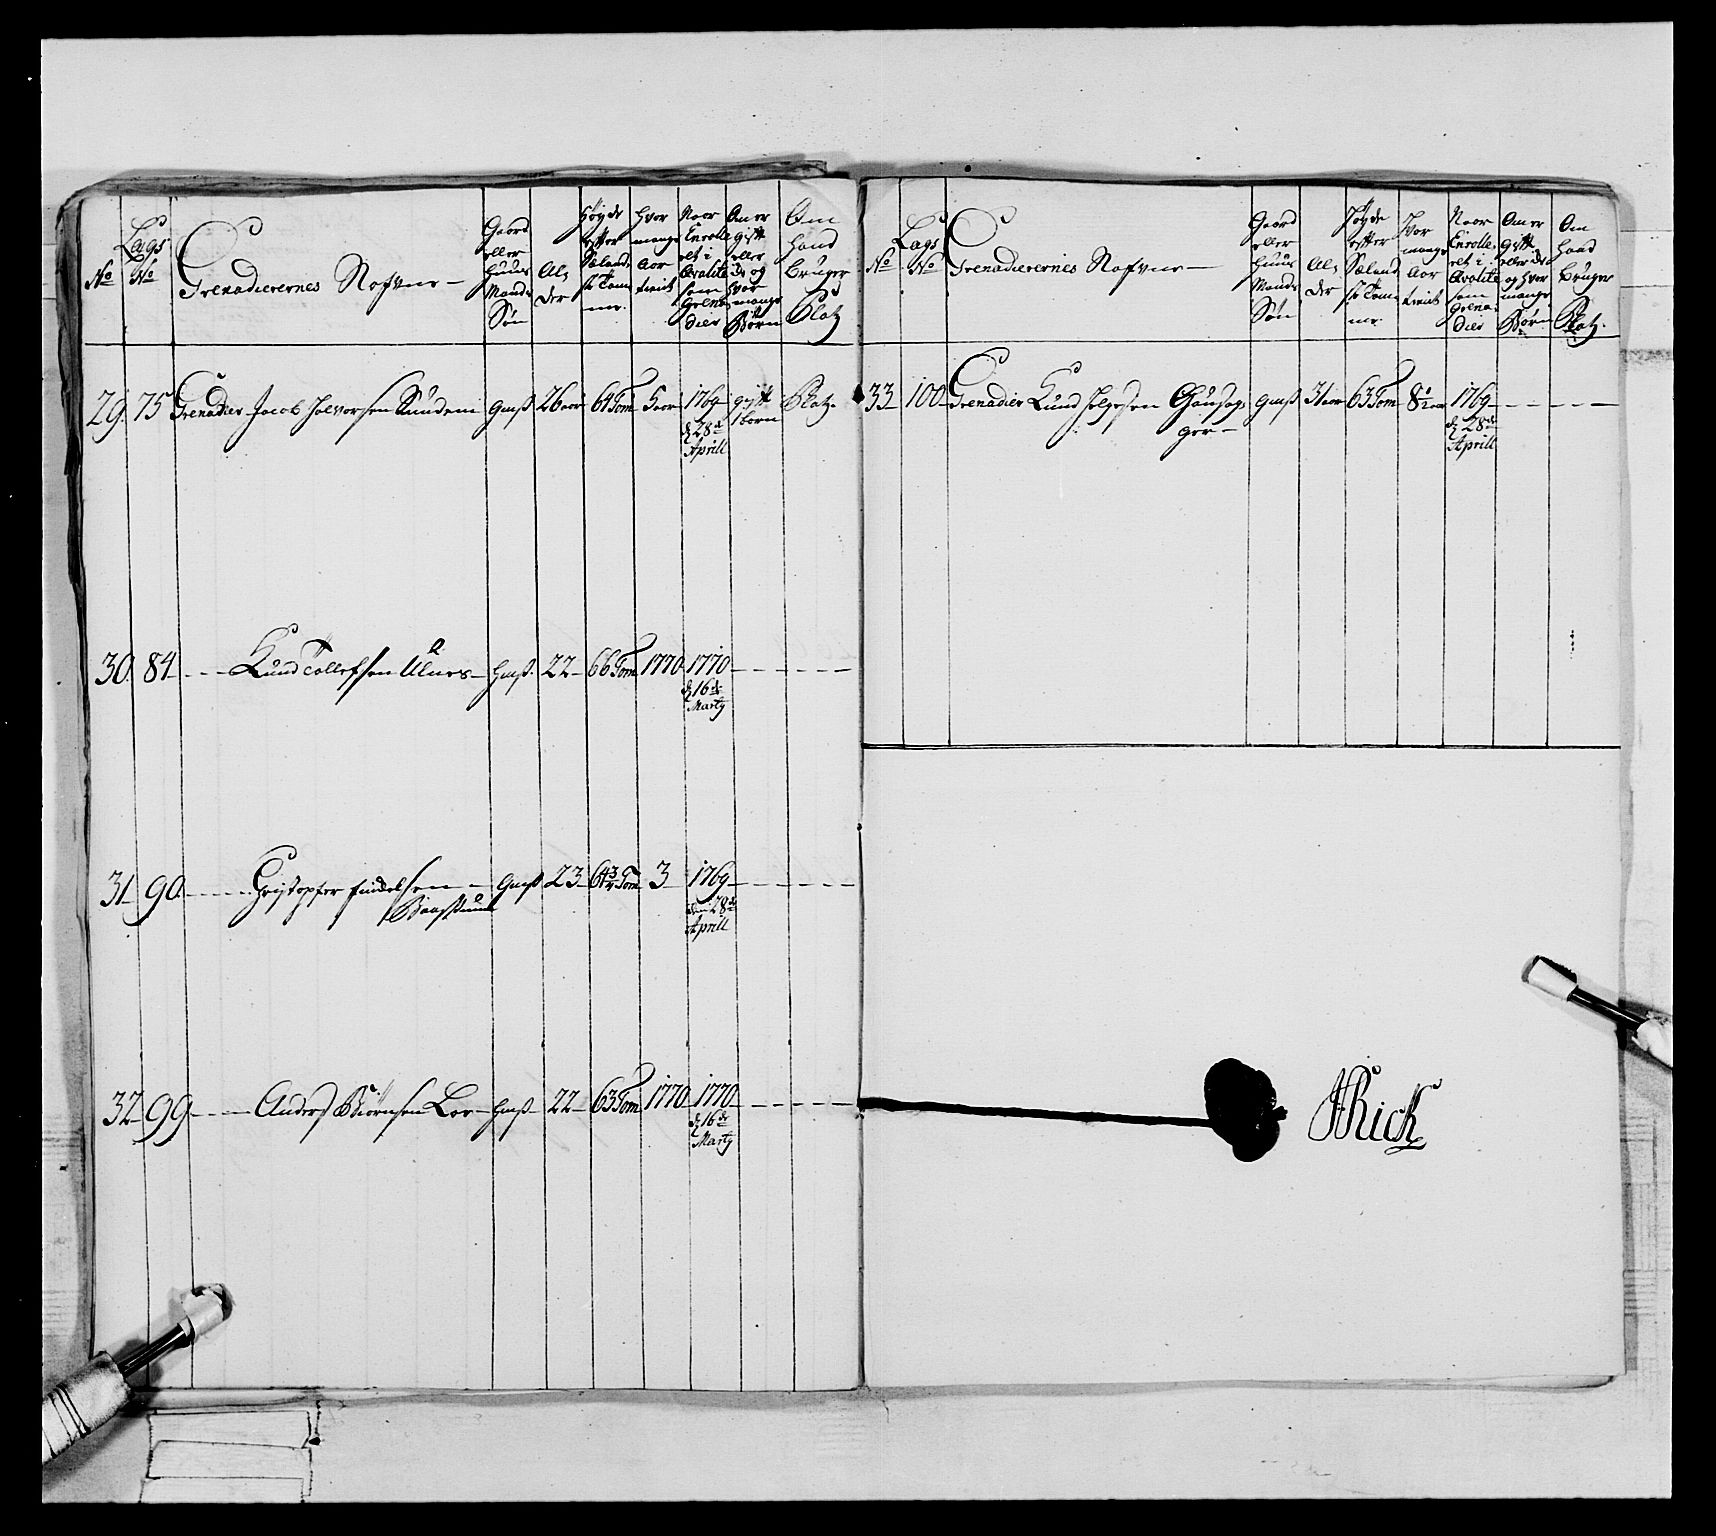 No
Lags No
Grenadierernes Nafne
Gaard eller Huus Mands Søn
Alder
Høyde efter Sælands Tomme
Hvor mange Aar tient
Naar Enrolleret i Qvalite som Grenadier
Om er gift eller Ei og hvor mange Børn
Om hand bruger Platz
29. 75 Grenadier Jacob Halvorsen gmß 26 aar 64 Tom 5 aar 1769 d 28de Aprill gift 1 born Platz
30. 84 Knud Tollefsen Ulnes hmß. 22 66 Tom 1770 1770 d 16de Marty
31 90 Christopfer gmß 23 64 3/4 Tom 3 1769 den 28de Aprill
32 99 Anders Biørnsen Lee hmß 22 63 Tom 1770 1770 d 16de Marty
No
Lags No
Grenadierernes Nafne
Gaard eller Huus Mands Søn
Alder
Høyde efter Sælands Tomme
Hvor mange Aar tient
Naar Enrolleret i Qvalite som Grenadier
Om er gift eller Ei og hvor mange Børn
Om hand bruger Platz.
33 100 Grenadier Knud Helgesen gmß 31 aar 63 Tom 8 1/2 aar 1769 d 28de Aprill
Rick